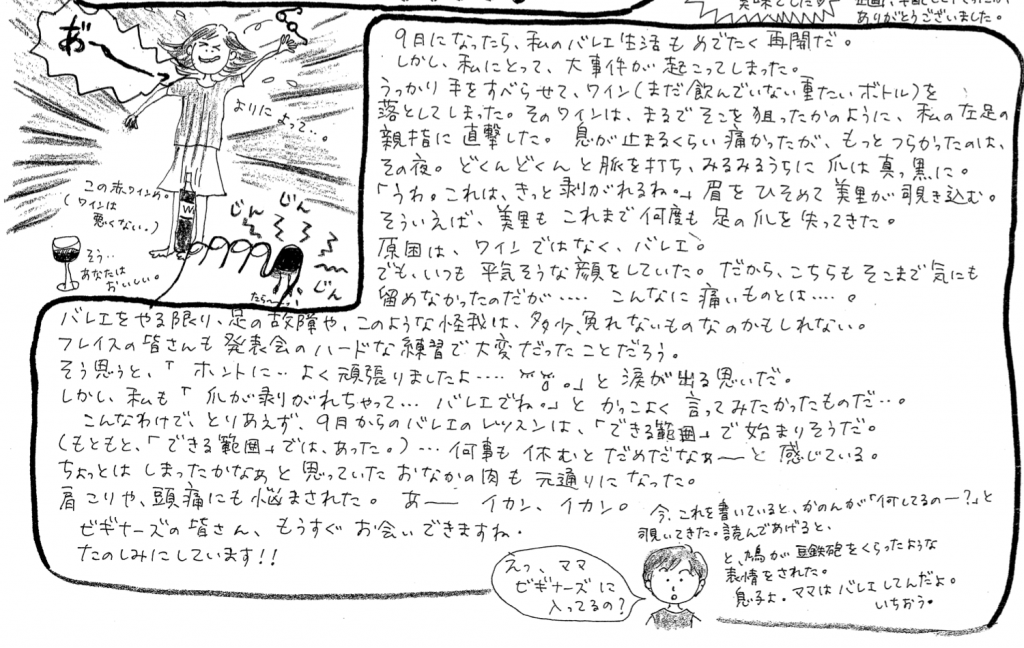 ありがとうございました。
お〜
よりによって…。
この赤ワインが。
(ワインは
悪くない。)
そう…
あなたは
おいしい。
W
じん
じん
じん
たら〜
9月になったら、私のバレエ生活もめでたく再開だ。
しかし、私にとって、大事件が起こってしまった。
うっかり手をすべらせて、ワイン(まだ飲んでいない重たいボトル)を
落としてしまった。そのワインは、まるでそこを狙ったかのように、私の左足の
親指に直撃した。息が止まるくらい痛かったが、もっとつらかったのは、
その夜。どくんどくんと脈を打ち、みるみるうちに爪は真っ黒に。
「うわ。これは、きっと剥がれるね。」眉をひそめて美里が覗き込む。
そういえば、美里もこれまで何度も足の爪を失ってきた。
原因は、ワインではなく、バレエ。
でも、いつも平気そうな顔をしていた。だから、こちらもそこまで気にも
留めなかったのだが…‥ こんなに痛いものとは…‥。
バレエをやる限り、足の故障や、このような怪我は、多少、免れないものなのかもしれない。
フレイスの皆さんも発表会のハードな練習で大変だったことだろう。
そう思うと、「ホントに‥よく頑張りましたよ…‥ 。」と涙が出る思いだ。
しかし、私も「爪が剥がれちゃって… バレエでね。」とかっこよく言ってみたかったものだ…。
こんなわけで、とりあえず、9月からのバレエのレッスンは、「できる範囲」で始まりそうだ。
(もともと、「できる範囲」では、あった。)…何事も休むとだめだなぁーと感じている。
ちょっとはしまったかなぁと思っていたおなかの肉も元通りになった。
肩こりや、頭痛にも悩まされた。あー イカン、イカン。
ビギナーズの皆さん、もうすぐお会いできますね。
たのしみにしています!!
今、これを書いていると、かのんが「何してるのー?」と
覗いてきた。読んであげると、
えっ、ママ
ビギナーズに
入ってるの?
と、鳩が豆鉄砲をくらったような
表情をされた。
息子よ。ママはバレエしてんだよ。
いちおう。